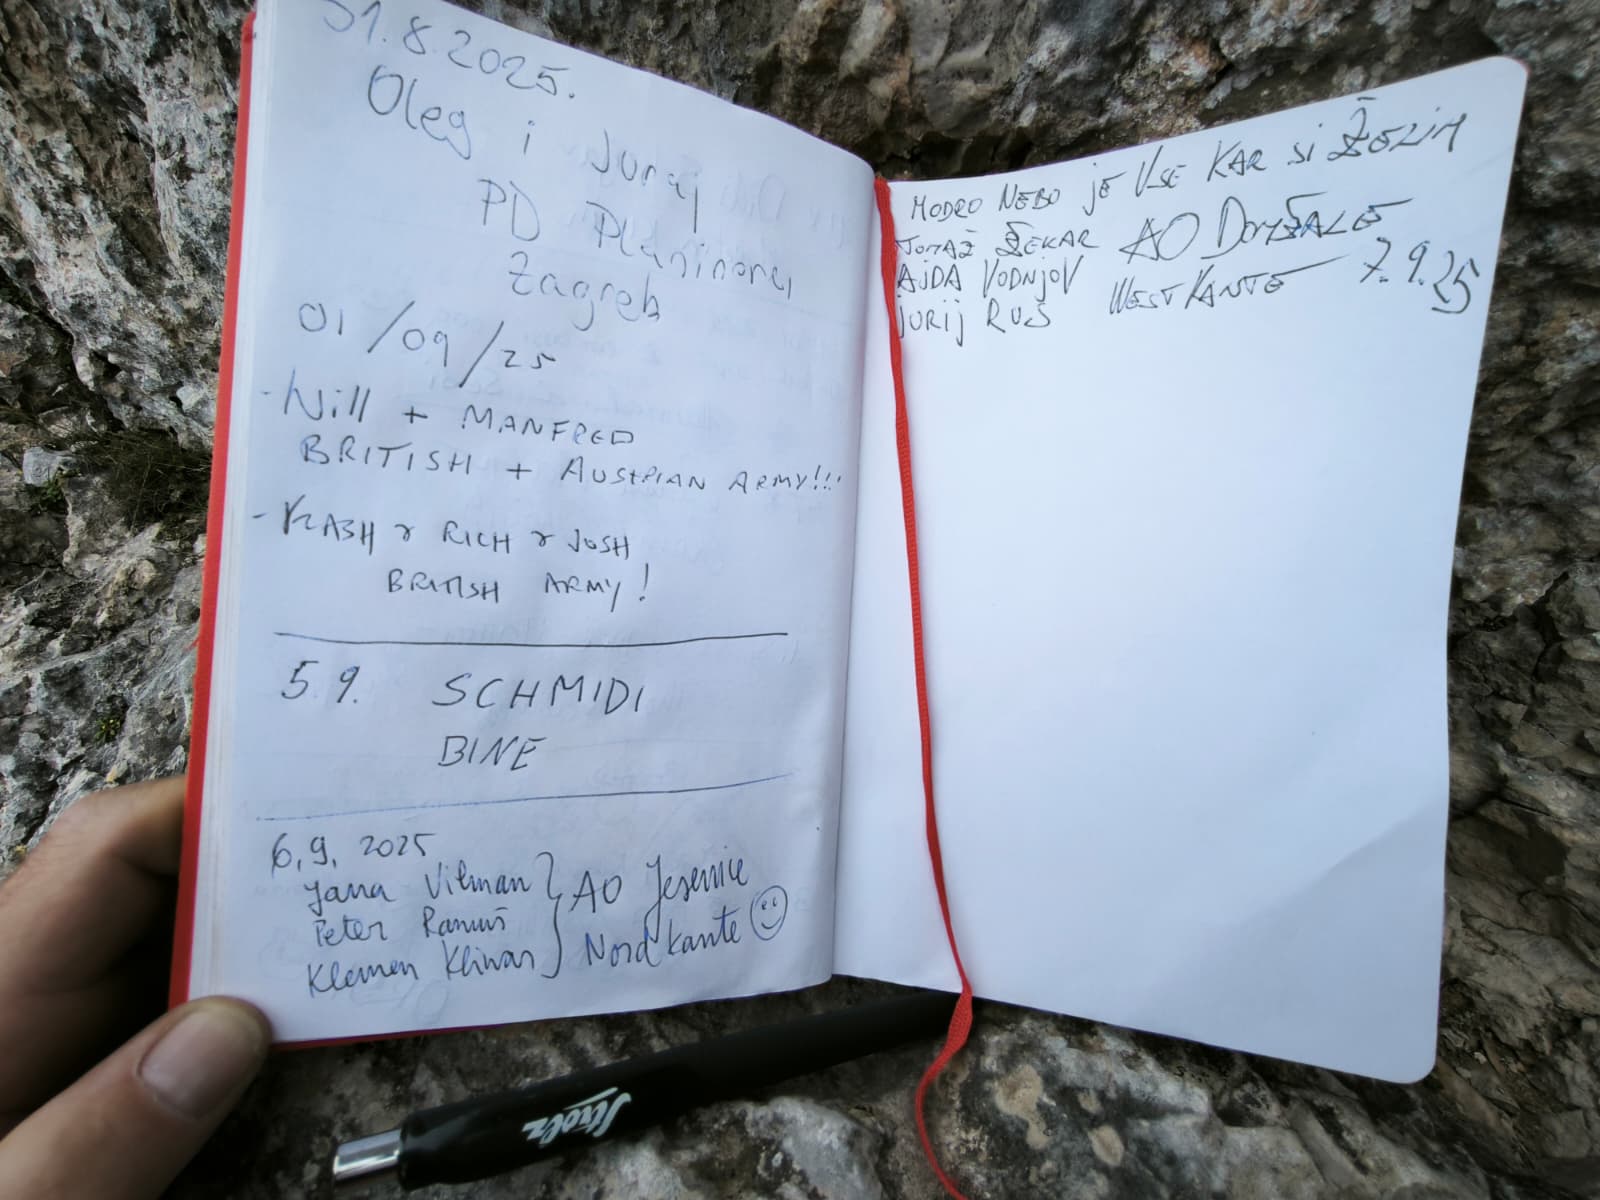 31.8.2025.
Oleg i Juraj
PD Planinarej
Zagreb
01/09/25
- Will + MANFRED
BRITISH + AUSTRIAN ARMY!!!
- KASH & RICH & JOSH
BRITISH ARMY!
5.9. SCHMIDI
BINE
6,9, 2025
Jana Vilman
Peter Ramuš
Klemen Klinar
AO Jesenice
Nordkante
MODRO NEBO JE VSE KAR SI ŽELIM
TOMAŽ ŽEKAR AO DOMŽALE
AJDA VODNJOV WESTKANTE 7.9.25
JURIJ RUS
Strolz